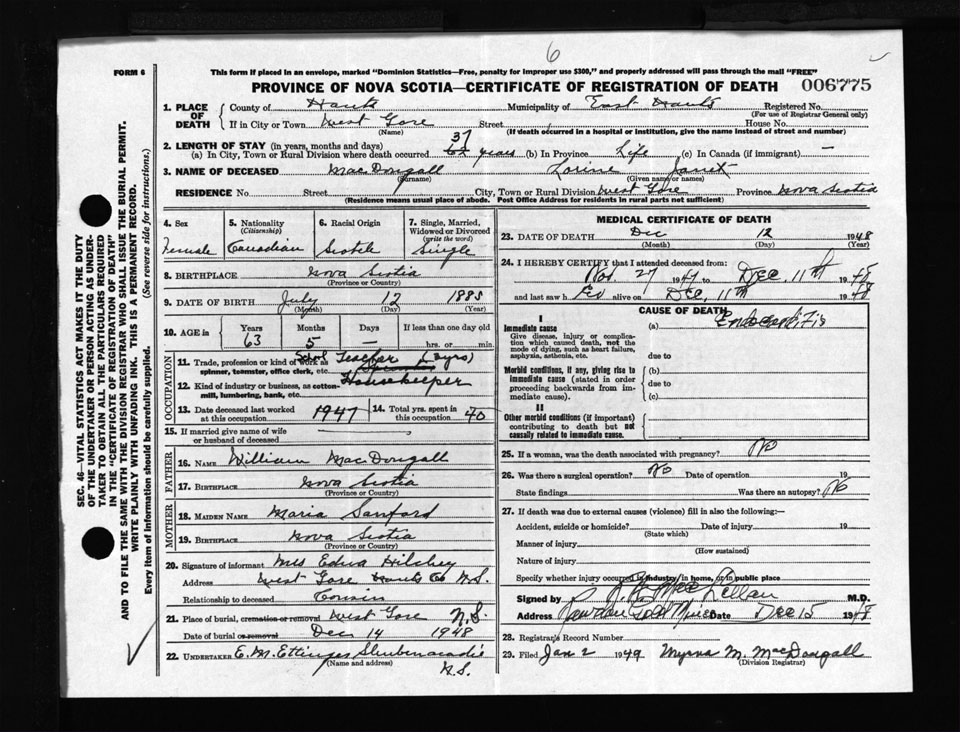 6
FORM 6
This form if placed in an envelope, marked "Dominion Statistics—Free, penalty for improper use $300," and properly addressed will pass through the mail "FREE"
PROVINCE OF NOVA SCOTIA—CERTIFICATE OF REGISTRATION OF DEATH 006775
1. PLACE OF DEATH County of Hants Municipality of East Hants Registered No.
(For use of Registrar General only)
If in City or Town West Gore Street House No.
(Name) (If death occurred in a hospital or institution, give the name instead of street and number)
2. LENGTH OF STAY (in years, months and days) 37
(a) In City, Town or Rural Division where death occurred 62 years (b) In Province Life (c) In Canada (if immigrant) —
3. NAME OF DECEASED MacDougall Lorine Janet
(Surname) (Given name or names)
RESIDENCE No. Street City, Town or Rural Division West Gore Province Nova Scotia
(Residence means usual place of abode. Post Office Address for residents in rural parts not sufficient)
4. Sex 5. Nationality (Citizenship) 6. Racial Origin 7. Single, Married, Widowed or Divorced (write the word)
Female Canadian Scotch Single
8. BIRTHPLACE Nova Scotia
(Province or Country)
9. DATE OF BIRTH July 12 1885
(Month) (Day) (Year)
10. AGE in Years Months Days If less than one day old
63 5 — hrs. or min.
OCCUPATION
11. Trade, profession or kind of work as School Teacher (2 yrs)
spinner, teamster, office clerk, etc.
12. Kind of industry or business, as cotton-mill, lumbering, bank, etc. Housekeeper
13. Date deceased last worked at this occupation 1947 14. Total yrs. spent in this occupation 40
15. If married give name of wife or husband of deceased —
FATHER
16. NAME William MacDougall
17. BIRTHPLACE Nova Scotia
(Province or Country)
MOTHER
18. MAIDEN NAME Maria Sanford
19. BIRTHPLACE Nova Scotia
(Province or Country)
20. Signature of informant Mrs Edna Hilchey
Address West Gore Hants Co N.S.
Relationship to deceased Cousin
21. Place of burial, cremation or removal West Gore N.S.
Date of burial or removal Dec 14 1948
22. UNDERTAKER E. M. Ettinger Shubenacadie
(Name and address) N.S.
MEDICAL CERTIFICATE OF DEATH
23. DATE OF DEATH Dec 12 1948
(Month) (Day) (Year)
24. I HEREBY CERTIFY that I attended deceased from:
Nov. 27 1947 to Dec. 11th 1948
and last saw h alive on Dec, 11th 1948
CAUSE OF DEATH
I
Immediate cause (a)
Give disease, injury or complication which caused death, not the mode of dying, such as heart failure, asphyxia, asthenia, etc. due to
Morbid conditions, if any, giving rise to immediate cause (stated in order proceeding backwards from immediate cause). (b)
due to
(c)
II
Other morbid conditions (if important) contributing to death but not causally related to immediate cause.
25. If a woman, was the death associated with pregnancy? No
26. Was there a surgical operation? No Date of operation 19
State findings Was there an autopsy? No
27. If death was due to external causes (violence) fill in also the following:—
Accident, suicide or homicide? Date of injury 19
(State which)
Manner of injury
(How sustained)
Nature of injury
Specify whether injury occurred in industry, in home, or in public place
Signed by MacLellan M.D.
Address Rawdon Gold Mines Date Dec 15 1948
28. Registrar's Record Number
29. Filed Jan 2 1949 Myrna M. MacDougall
(Division Registrar)
SEC. 46—VITAL STATISTICS ACT MAKES IT THE DUTY
OF THE UNDERTAKER OR PERSON ACTING AS UNDER-
TAKER TO OBTAIN ALL THE PARTICULARS REQUIRED
IN THE "CERTIFICATE OF REGISTRATION OF DEATH" AND TO FILE THE SAME WITH THE DIVISION REGISTRAR WHO SHALL ISSUE THE BURIAL PERMIT.
WRITE PLAINLY WITH UNFADING INK. THIS IS A PERMANENT RECORD.
Every item of information should be carefully supplied. (See reverse side for instructions.)